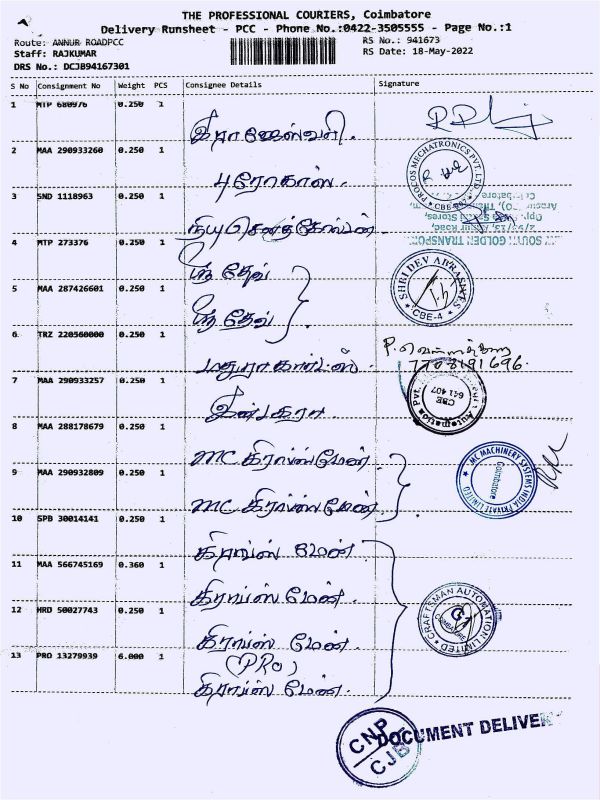 THE PROFESSIONAL COURIERS, Coimbatore
Delivery Runsheet - PCC - Phone No.:0422-3505555 - Page No.:1
Route: ANNUR ROADPCC
RS No.: 941673
Staff: RAJKUMAR
RS Date: 18-May-2022
DRS No.: DCJB94167301
S No Consignment No Weight PCS Consignee Details Signature
1 MTP 680976 0.250 1
இராஜேஸ்வரி.
2 MAA 290933260 0.250 1
புரோகாஸ்.
PROCOS MECHATRONICS PVT. LTD.
3 SND 1118963 0.250 1
SOUTH GOLDEN TRANSPORT
4 MTP 273376 0.250 1
ஸ்ரீ தேவ்
SHRI DEV ABRASIVES
CBE-4
5 MAA 287426601 0.250 1
ஸ்ரீ தேவ்
6 TRZ 220560000 0.250 1
மதுரா கார்ட்ஸ்.
7708191696.
7 MAA 290933257 0.250 1
CBE
641 407
Automation Pvt.
8 MAA 288178679 0.250 1
MC கிராப்ஸ்மேன்
9 MAA 290932809 0.250 1
MC கிராப்ஸ்மேன்.
MC MACHINERY SYSTEMS INDIA PRIVATE LIMITED
Coimbatore
10 SPB 30014141 0.250 1
கிராப்ஸ் மேன்.
11 MAA 566745169 0.360 1
கிராப்ஸ் மேன்.
12 HRD 50027743 0.250 1
கிராப்ஸ் மேன்.
CRAFTSMAN AUTOMATION LIMITED
COIMBATORE
13 PRO 13279939 6.000 1
(PRO)
கிராப்ஸ் மேன்.
CNP
CJB
DOCUMENT DELIVER